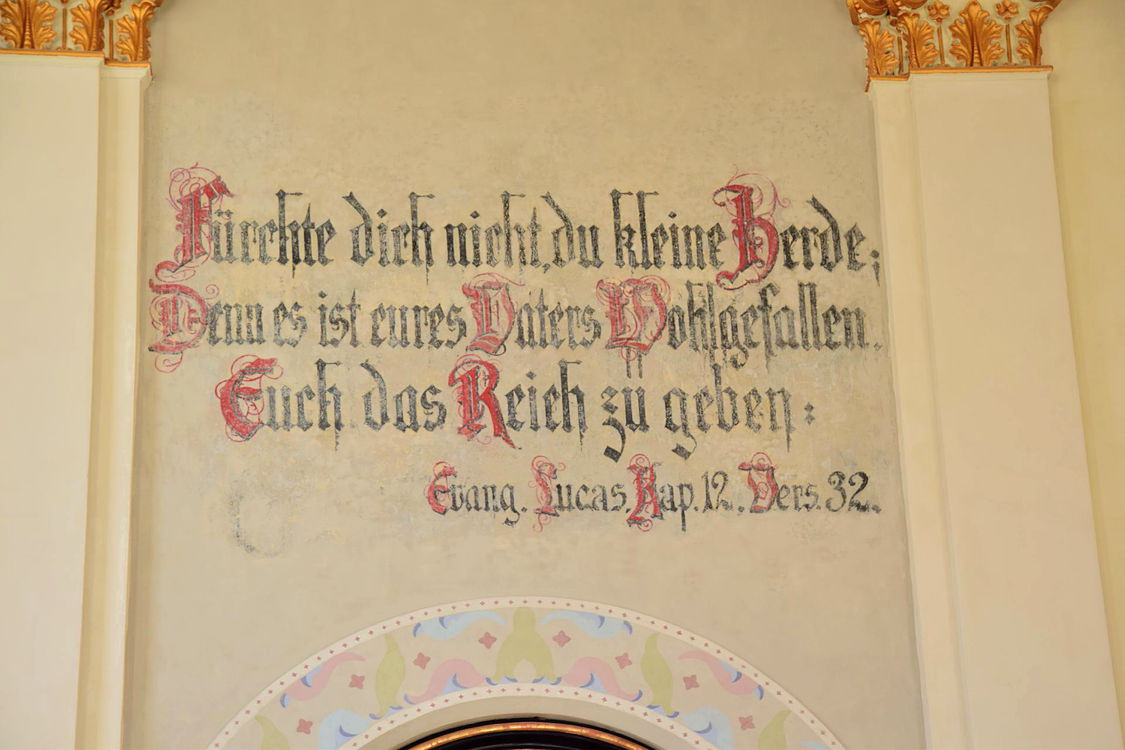 Fürchte dich nicht, du kleine Herde;
Denn es ist eures Vaters Wohlgefallen.
Euch das Reich zü geben:
Evang. Lucas. Kap. 12. Vers. 32.